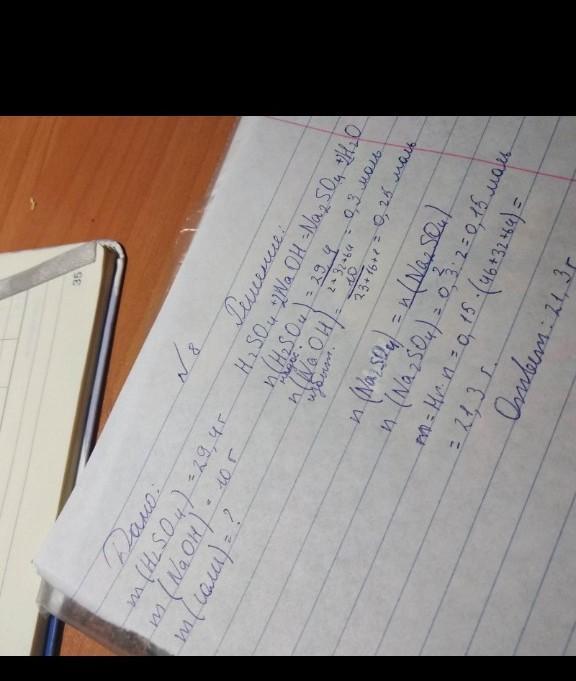 35
N 8
Дано:
m(H2SO4) = 29,4 г
m(NaOH) = 10 г
m(соли) = ?
Решение:
H2SO4 + 2NaOH = Na2SO4 + 2H2O
n(H2SO4) = 29,4 / 2+32+64 = 0,3 моль
n(NaOH) = 10 / 23+16+1 = 0,25 моль
n(Na2SO4) = n(Na2SO4) / 2
n(Na2SO4) = 0,3 : 2 = 0,15 моль
m = Mr · n = 0,15 · (46+32+64) =
= 21,3 г.
Ответ: 21,3 г